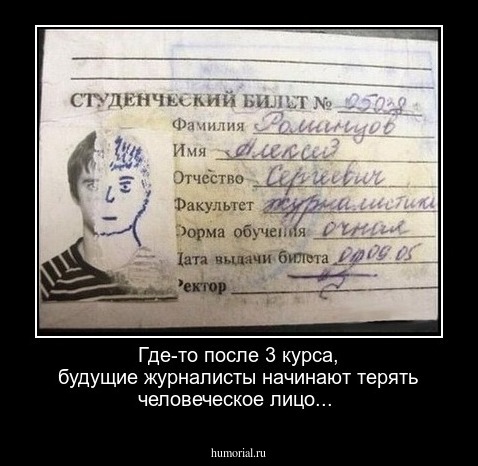 СТУДЕНЧЕСКИЙ БИЛЕТ № 05039
Фамилия Романцов
Имя Алексей
Отчество Сергеевич
Факультет журналистики
Форма обучения очная
Дата выдачи билета 09 05
Ректор
Где-то после 3 курса,
будущие журналисты начинают терять
человеческое лицо...
humorial.ru